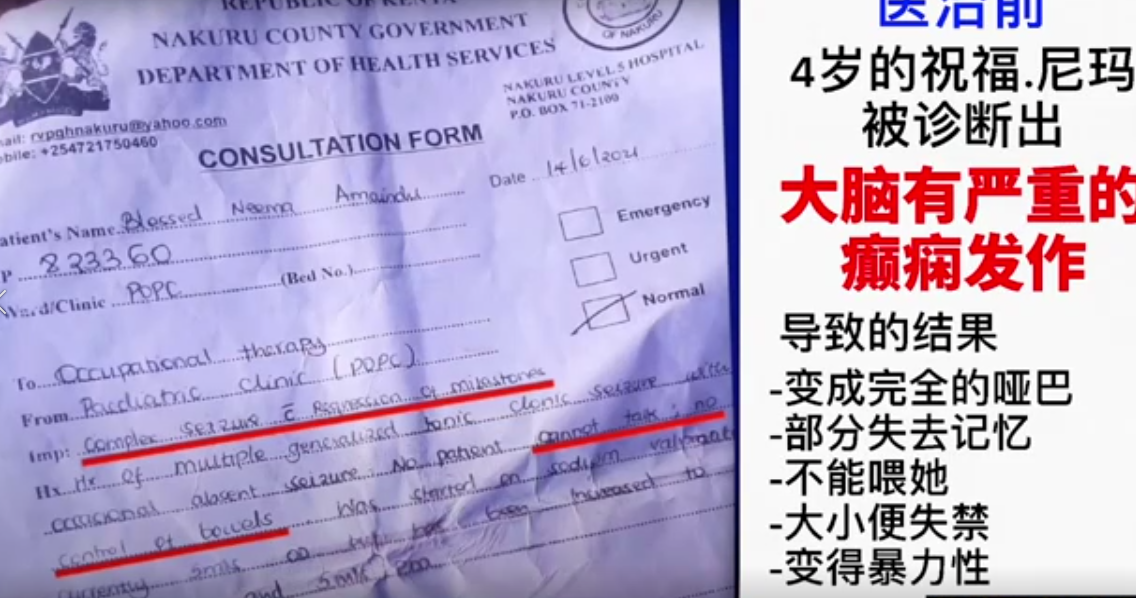 REPUBLIC OF KENYA
NAKURU COUNTY GOVERNMENT
DEPARTMENT OF HEALTH SERVICES
OF NAKURU
NAKURU LEVEL 5 HOSPITAL
NAKURU COUNTY
P.O. BOX 71-2100
mail: rvpghnakuru@yahoo.com
obile: +254721750460
CONSULTATION FORM
Date .. 14/6/2021
atient's Name Blessed Neema Amaindu
P 823360
Ward/Clinic POPC (Bed No.)
Emergency
Urgent
Normal
To Occupational therapy
From Paediatric Clinic (POPC)
Imp: Complex seizure c̄ Regression of milestones
Hx Hx of multiple generalized tonic clonic seizure with
occasional absent seizure. No patient cannot talk, no
control of bowels Was started on sodium valproate
currently 5mls been increased to
and 5mls
医治前
4岁的祝福.尼玛
被诊断出
大脑有严重的
癫痫发作
导致的结果
-变成完全的哑巴
-部分失去记忆
-不能喂她
-大小便失禁
-变得暴力性